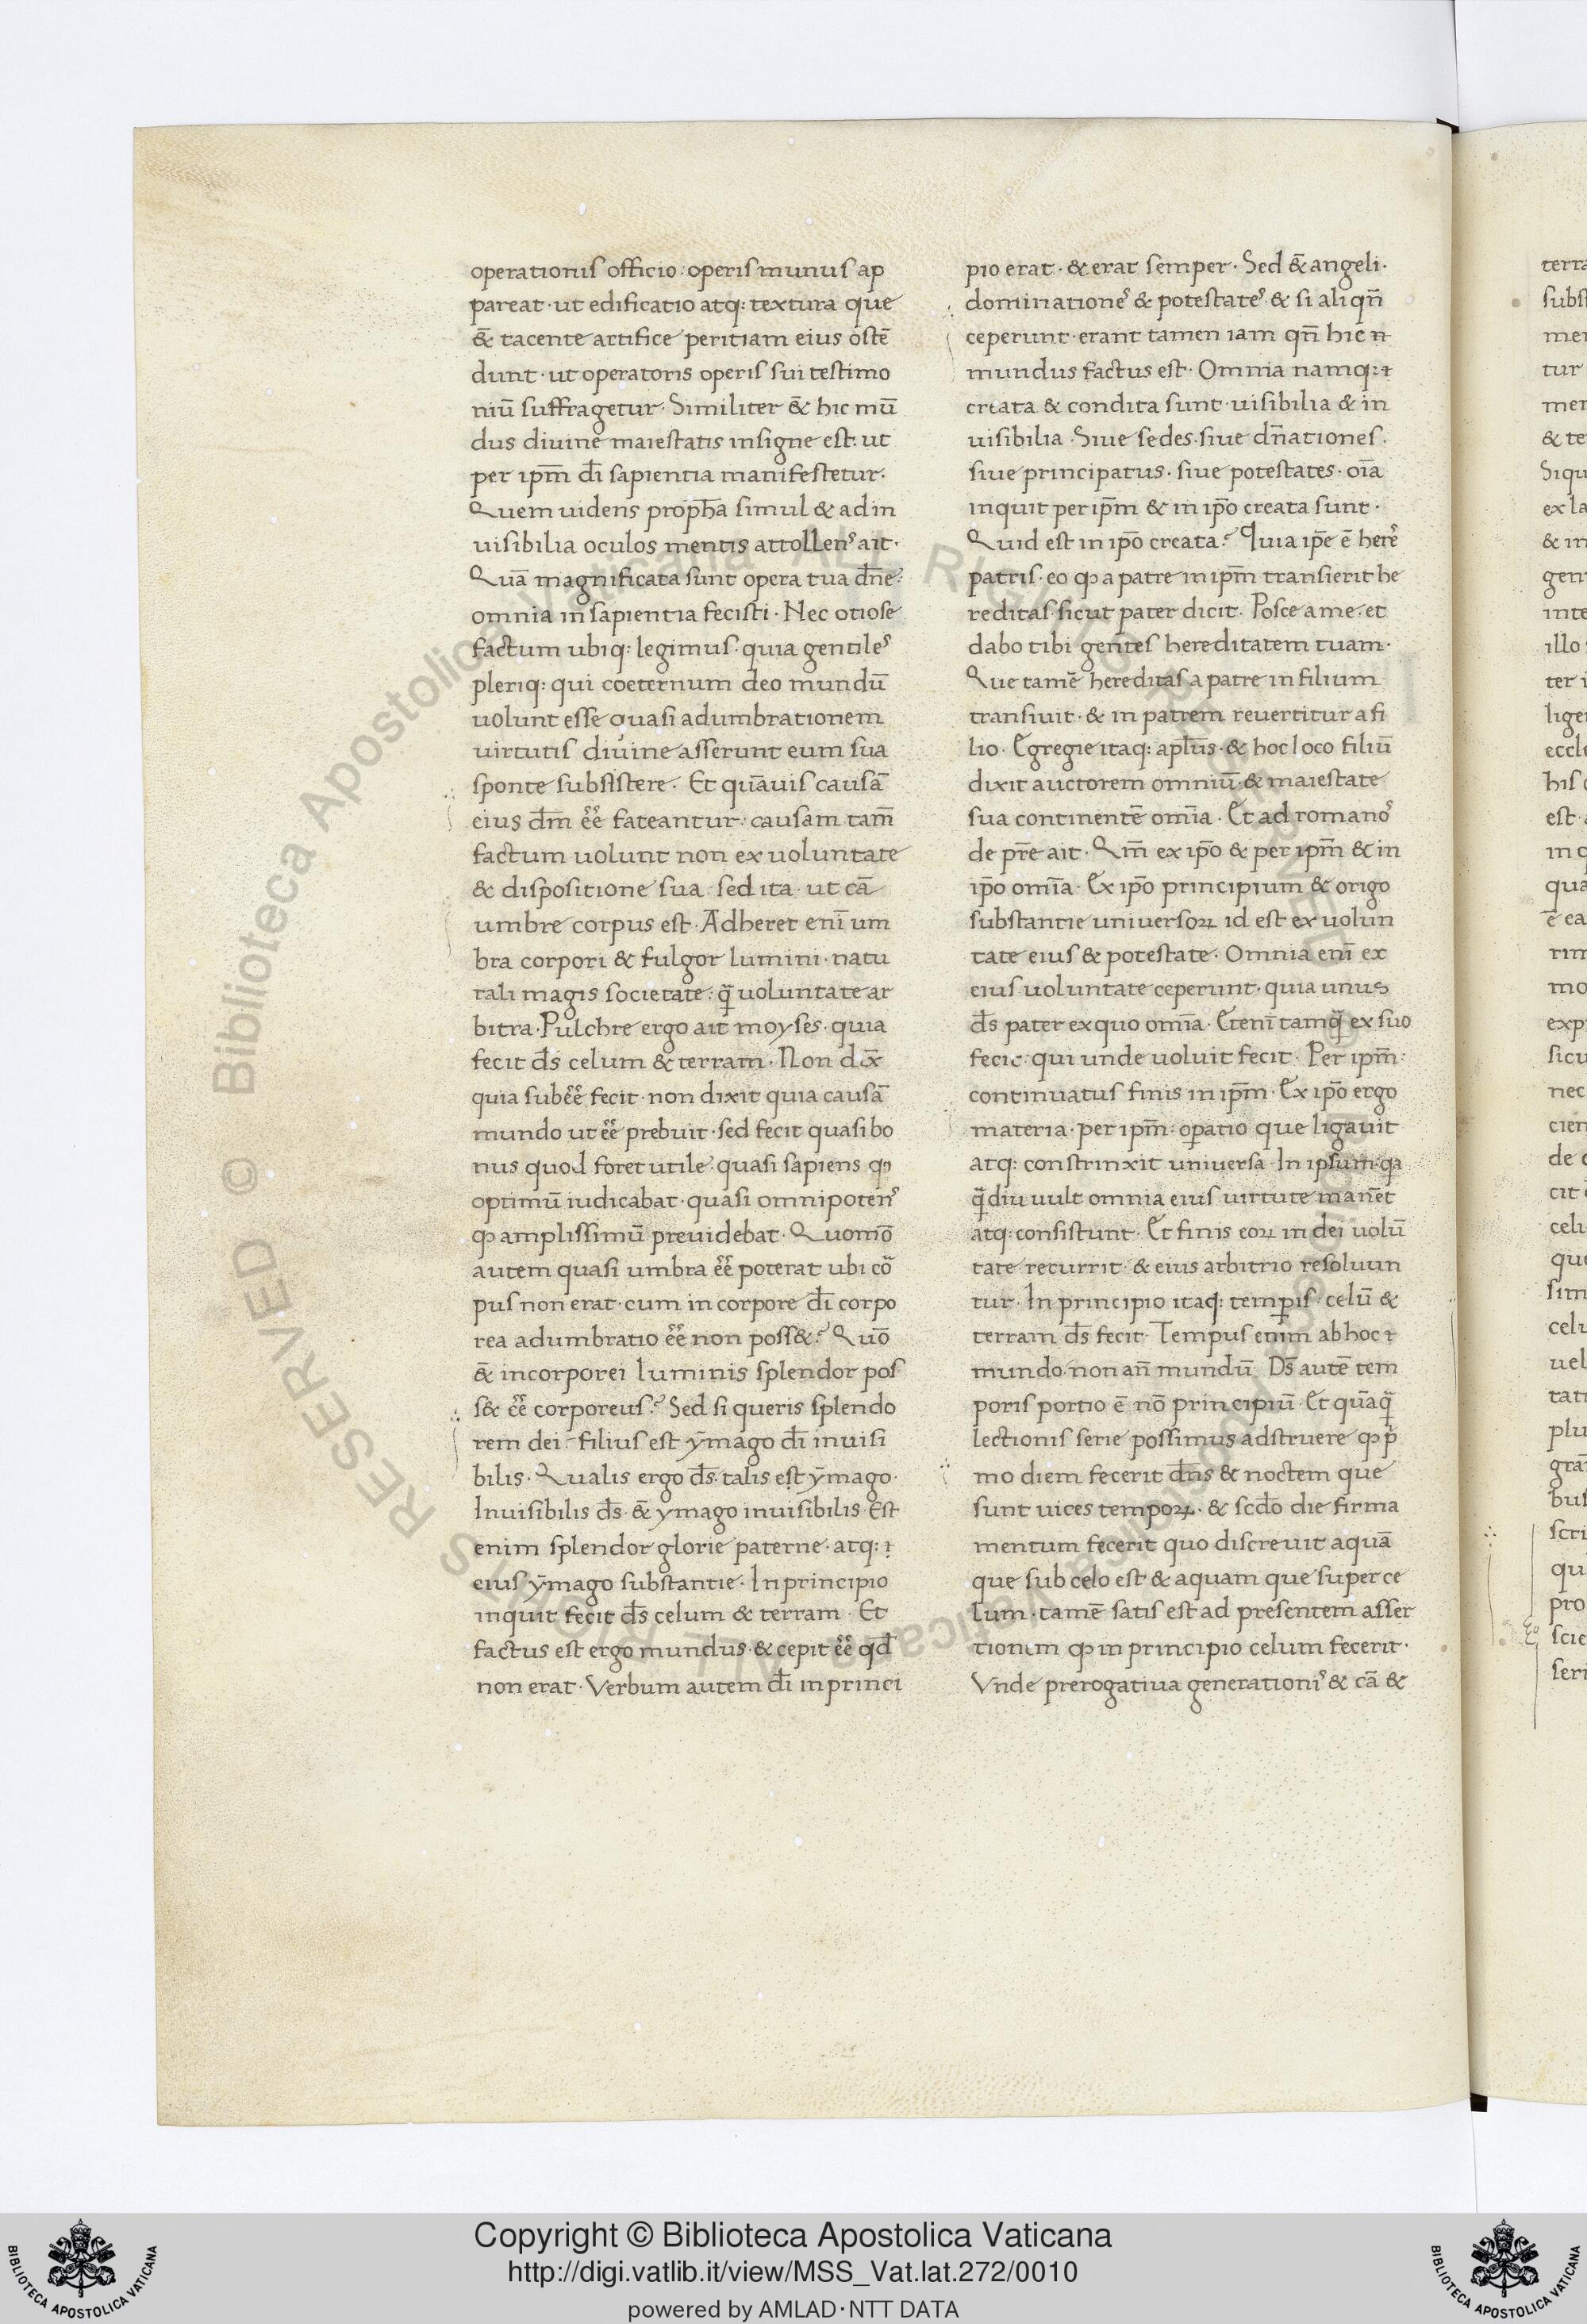 operationis officio: operis munus ap
pareat · ut edificatio atq: textura que
&̄ tacente artifice peritiam eius oste᷒n̄
dunt · ut operatoris operis sui testimo
niū suffragetur · Similiter &̄ hic mū
dus divine maiestatis insigne est. ut
per ip̄m dī sapientia manifestetur.
Quem videns proph̄a simul & ad in
visibilia oculos mentis attollens ait.
Quā magnificata sunt opera tua dn̄e:
omnia in sapientia fecisti · Nec otiose
factum ubiq: legimus · quia gentiles
pleriq: qui coeternum deo mundū
volunt esse quasi adumbrationem
virtutis divine asserunt eum sua
sponte subsistere. Et quāvis causā
eius dm̄ ēē fateantur: causam tam̄
factum volunt non ex voluntate
& dispositione sua: sed ita · ut cā
umbre corpus est · Adheret enī um
bra corpori & fulgor lumini · natu
rali magis societate: q̄ voluntate ar
bitra · Pulchre ergo ait moyses · quia
fecit ds̄ celum & terram · Non dix̄
quia subēē fecit · non dixit quia causā
mundo ut ēē prebuit · sed fecit quasi bo
nus quod foret utile: quasi sapiens qn
optimū iudicabat · quasi omnipotens
ꝙ amplissimū previdebat · Quomō
autem quasi umbra ēē poterat ubi co᷒r
pus non erat · cum in corpore dī corpo
rea adumbratio ēē non poss&? Quō
&̄ incorporei luminis splendor pos
s& ēē corporeus? Sed si queris splendo
rem dei · filius est ymago dī invisi
bilis · Qualis ergo ds̄ · talis est ymago ·
Invisibilis ds̄ · &̄ ymago invisibilis · Est
enim splendor glorie paterne · atq: ꝛ
eius ymago substantie · In principio
inquit fecit ds̄ celum & terram · Et
factus est ergo mundus · & cepit ēē qd̄
non erat · Verbum autem dī in princi
pio erat · & erat semper · Sed &̄ angeli ·
dominationes & potestates & si aliqn̄
ceperunt · erant tamen iam qn̄ hic ꝛ
mundus factus est · Omnia namq: ꝛ
creata & condita sunt · visibilia & in
visibilia · Sive sedes · sive dn̄ationes ·
sive principatus · sive potestates · oīa
inquit per ip̄m & in ip̄o creata sunt ·
Quid est in ip̄o creata? Quia ip̄e ē heres
patris · eo ꝙ a patre in ip̄m transierit he
reditas · sicut pater dicit · Posce a me · et
dabo tibi gentes hereditatem tuam ·
Que tamē hereditas a patre in filium
transivit · & in patrem revertitur a fi
lio · Egregie itaq: apl̄us · & hoc loco filiū
dixit auctorem omniū · & maiestate
sua continentē omīa · Et ad romanos
de pr̄e ait · Qm̄ ex ip̄o & per ip̄m & in
ip̄o omīa · Ex ip̄o principium & origo
substantie universoꝝ id est ex volun
tate eius & potestate · Omnia enī ex
eius voluntate ceperunt · quia unus
ds̄ pater ex quo omīa · Etenī tamq̄ ex suo
fecit: qui unde voluit fecit · Per ip̄m:
continuatus finis in ip̄m · Ex ip̄o ergo
materia · per ip̄m: oꝑatio que ligavit
atq: constrinxit universa · In ipsum: qa
q̄diu vult omnia eius virtute manēt
atq: consistunt · Et finis eoꝝ in dei volū
tate recurrit · & eius arbitrio resolvun
tur · In principio itaq: temꝑis · celū &
terram ds̄ fecit · Tempus enim ab hoc ꝛ
mundo · non an̄ mundū · Ds̄ autē tem
poris portio ē nō principiū · Et quāq̄
lectionis serie possimus adstruere ꝙ p
mo diem fecerit dn̄s & noctem que
sunt vices tempoꝝ · & scd̄o die firma
mentum fecerit quo discrevit aquā
que sub celo est & aquam que super ce
lum · tamē satis est ad presentem asser
tionem ꝙ in principio celum fecerit ·
Vnde prerogativa generationis & cā &
Copyright © Biblioteca Apostolica Vaticana
http://digi.vatlib.it/view/MSS_Vat.lat.272/0010
powered by AMLAD·NTT DATA